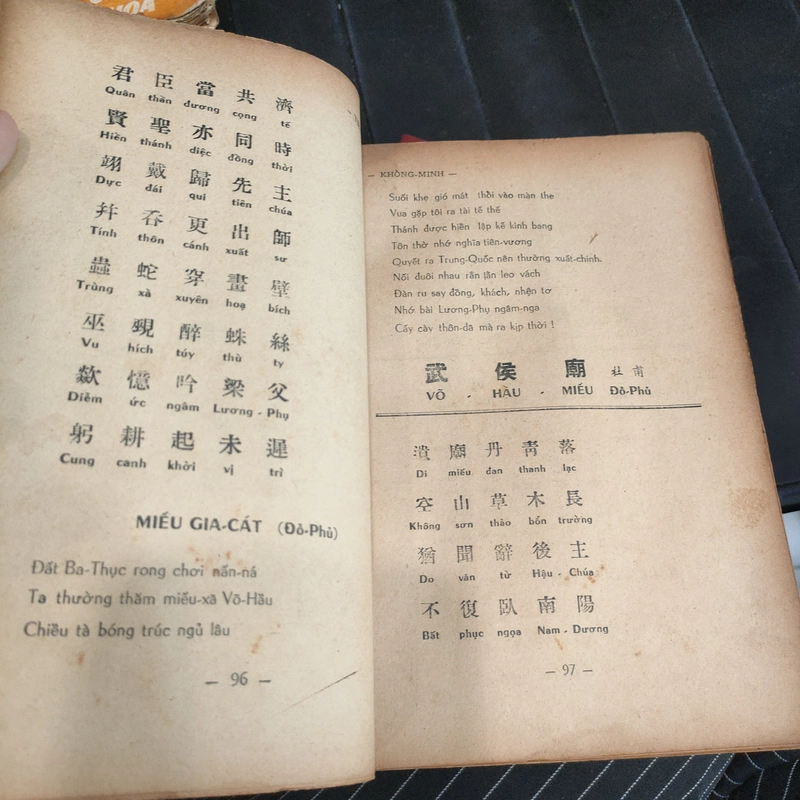 HOA
君 臣 當 共 濟
Quân thần đương cọng tế
賢 聖 亦 同 時
Hiền thánh diệc đồng thời
翊 戴 歸 先 主
Dực đái qui tiên chúa
并 吞 更 出 師
Tính thôn cánh xuất sư
蟲 蛇 穿 畫 壁
Trùng xà xuyên hoạ bích
巫 覡 醉 蛛 絲
Vu hích túy thù ty
歘 憶 吟 梁 父
Diễm ức ngâm Lương - Phụ
躬 耕 起 未 遲
Cung canh khởi vị trì
MIẾU GIA-CÁT (Đỗ-Phủ)
Đất Ba-Thục rong chơi nấn-ná
Ta thường thăm miếu-xã Võ-Hầu
Chiều tà bóng trúc ngủ lâu
— 96 —
— KHỔNG-MINH —
Suối khe gió mát thổi vào màn the
Vua gặp tôi ra tài tế thế
Thánh được hiền lập kế kinh bang
Tôn thờ nhớ nghĩa tiên-vương
Quyết ra Trung-Quốc nên thường xuất-chinh.
Nối đuôi nhau rắn lằn leo vách
Đàn ru say đồng, khách, nhện tơ
Nhớ bài Lương-Phụ ngâm-nga
Cấy cày thôn-dã mà ra kịp thời !
武 侯 廟 杜 甫
VÕ - HẦU - MIẾU Đỗ-Phủ
遺 廟 丹 青 落
Di miếu đan thanh lạc
空 山 草 木 長
Không sơn thảo bổn trường
猶 聞 辭 後 主
Do văn từ Hậu - Chúa
不 復 臥 南 陽
Bất phục ngọa Nam - Dương
— 97 —